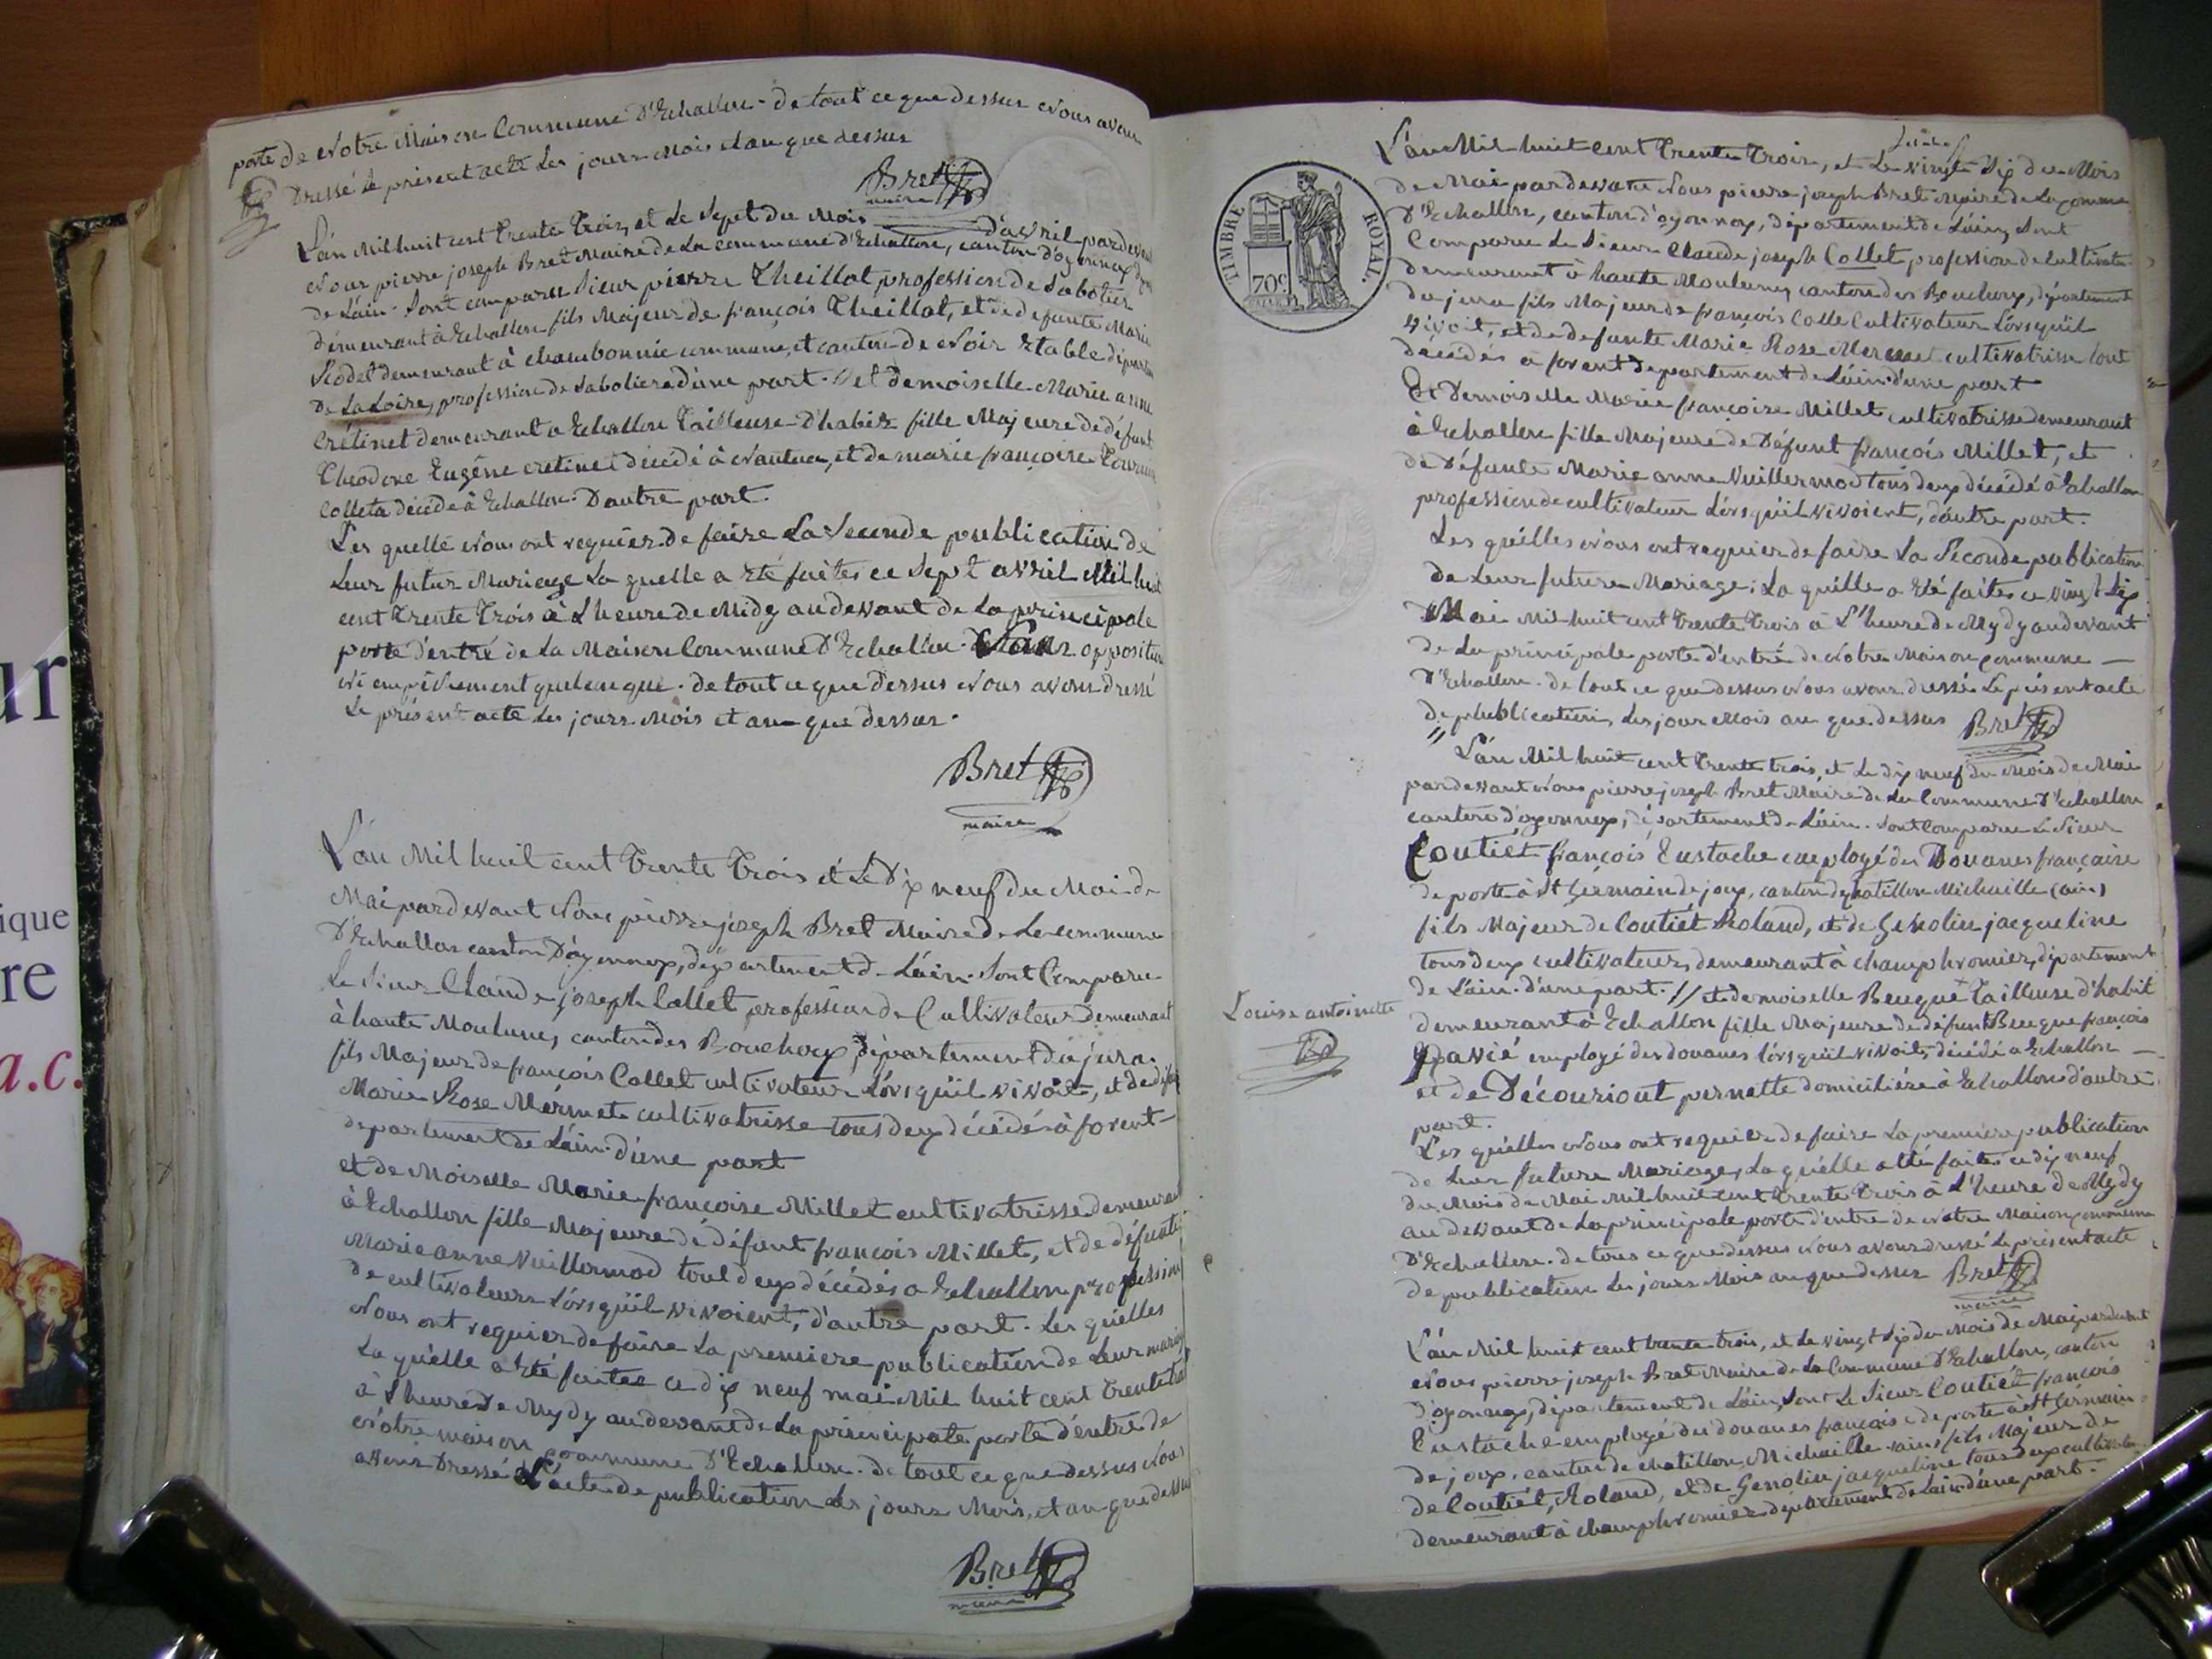 porte de Notre Maison Commune D'Echallon. de tout ce que dessus Nous avons
Dressé le présent acte Les jours Mois et an que dessus
Bret
maire
L'an Mil huit cent Trente Trois, et Le Sept du Mois D'avril pardevant
Nous pierre joseph Bret Maire de La commune d'Echallon, canton d'oyonnax
de L'ain. Sont comparu Sieur pierre Theillot, profession de Sabotier
demeurant à Echallon fils Majeur de françois Theillot, et de defunte Marie
demeurant à chambonnie commune, et canton de Noir Etable départem
De La Loire, profession de Sabotier d'une part. // et demoiselle Marie anne
Crétinet demeurant a Echallon Tailleuse d'habits fille Majeure de défunt
Theodore Eugéne cretinet décédé à Nantua, et de marie françoise
Colleta décédé à Echallon. D'autre part.
Les quelle Nous ont requier de faire La Seconde publication de
Leur futur Mariage La quelle a été faites ce Sept avril Mil huit
cent Trente Trois à L'heure de Midy au devant de La principale
porte d'entré de La Maison Commune D'Echallon. Sans opposition
Ni empêchement quelconque. de tout ce que dessus Nous avons dressé
Le présent acte Les jours Mois et an que dessus.
Bret
maire
L'an Mil huit cent Trente Trois et Le Dix neuf du Mois de
Mai pardevant Nous pierre joseph Bret Maire de La commune
D'Echallon canton D'oyonnax, département de L'ain. Sont Comparu
Le Sieur Claude joseph Collet profession de Cultivateur Demeurant
à haute Moulune, canton des Bouchoux, département du jura.
fils Majeur de françois Collet cultivateur Lorsqu'il vivoit, et de défunte
Marie Rose Mérmet cultivatrisse tous deux décédés à forent
departement de L'ain. d'une part
et de Moiselle Marie françoise Millet cultivatrisse demeurant
à Echallon fille Majeure de défunt françois Millet, et de défunte
Marie anne Vuillermod tout deux décédés a Echallon profession
de cultivateurs Lorsqu'il vivoient, d'autre part. Les quelles
Nous ont requier de faire La premiere publication de Leur mariage
La quelle a été faites ce dix neuf mai Mil huit cent Trente trois
à L'heure de Mydy au devant de La principale porte d'entré de
Notre maison commune D'Echallon. de tout ce que dessus Nous
avons Dressé L'acte de publication Les jours Mois, et an que dessus
Bret
maire
TIMBRE ROYAL
70c
L'an Mil huit cent Trente Trois, et Le vingt Six du Mois
de Mai pardevant Nous pierre joseph Bret Maire de La commune
D'Echallon, canton d'oyonnax, département de L'ain, Sont
Comparu Le Sieur Claude joseph Collet profession de Cultivateur
demeurant à haute Moulune, canton des Bouchoux, département
du jura fils Majeur de françois Collet Cultivateur Lorsqu'il
vivoit, et de defunte Marie Rose Mermet cultivatrisse tout
décédés a forent departement de L'ain. d'une part
Et Demoiselle Marie françoise Millet cultivatrisse demeurant
à Echallon fille Majeure de Défunt françois Millet, et
de Défunte Marie anne Vuillermod tous deux décédé à Echallon
profession de cultivateur Lorsqu'il vivoient, d'autre part.
Les quelles Nous ont requier de faire La Seconde publication
de Leur future Mariage. La quelle a été faites ce vingt Six
Mai Mil huit cent Trente Trois à L'heure de Mydy au devant
de La principale porte d'entré de Notre Maison commune
D'Echallon. de tout ce que dessus Nous avons dressé Le présent acte
de publication, Les jour Mois an que dessus Bret
L'an Mil huit cent trente trois, et Le dix neuf du Mois de Mai
pardevant Nous pierre joseph Bret Maire de La Commune D'Echallon
canton d'oyonnax, département de L'ain. Sont Comparu Le Sieur
Coutiét françois Eustache employé des Douanes françaire
de porte à St Germain de joux, canton de chatillon Michaille (ain)
fils Majeur de Coutiét Roland, et de Genolin jacqueline
tous deux cultivateurs, demeurant à champhromier, département
de L'ain. d'une part. // et demoiselle Beuque Tailleuse d'habit
Louise antoinette
demeurant à Echallon fille Majeure de défunt Beuque françois
Xavié employé des douanes lorsqu'il vivoit, décédé a Echallon
et de Découriout pernette domiciliére à Echallon d'autre
part.
Les quelles Nous ont requier de faire La premiere publication
de Leur future Mariage, La quelle a été faites ce dix neuf
du Mois de Mai Mil huit cent Trente Trois à L'heure de Mydy
au devant de La principale porte d'entré de Notre Maison commune
D'Echallon. de tous ce que dessus Nous avons dressé Le présent acte
de publication Les jours Mois an que dessus Bret
maire
L'an Mil huit cent trente trois, et Le vingt Six du Mois de Mai pardevant
Nous pierre joseph Bret Maire de La Commune D'Echallon, canton
d'oyonnax, département de L'ain, Sont Le Sieur Coutiét françois
Eustache employé des douanes françois de porte à St Germain
de joux, canton de chatillon Michaille (ain) fils Majeur de
de Coutiét, Roland, et de Genolin jacqueline tous deux cultivateur
demeurant à champhromier departement de L'ain. d'une part.
ur
ique
re
a.c.